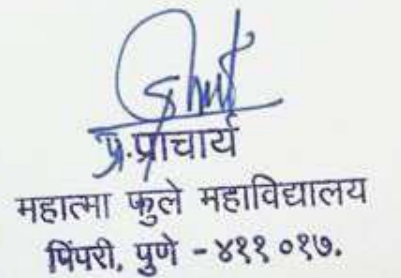 प्र.प्राचार्य
महात्मा फुले महाविद्यालय
पिंपरी, पुणे - ४११ ०१७.